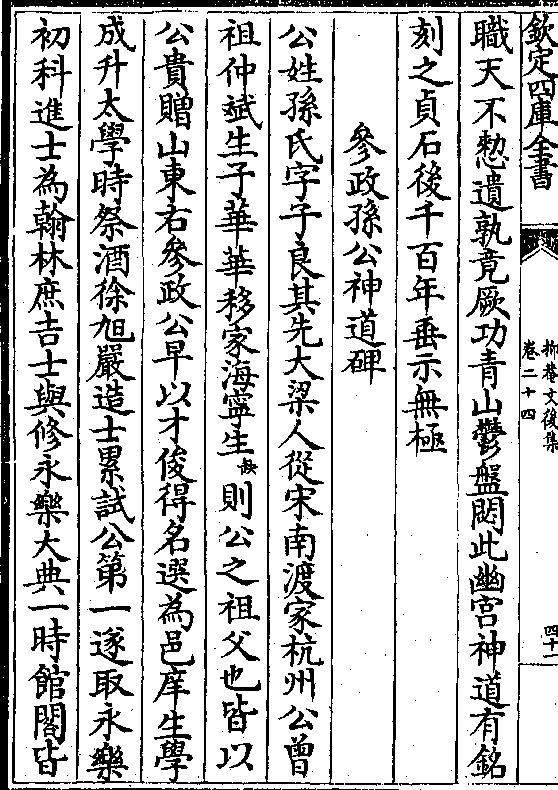 欽定四庫全書
抑菴文後集
卷二十四
四十一
職天不憗遺孰竟厥功青山鬱盤閟此幽宫神道有銘
刻之貞石後千百年垂示無極
參政孫公神道碑
公姓孫氏字子良其先大梁人從宋南渡家杭州公曾
祖仲斌生子華華移家海寧生敏則公之祖父也皆以
公貴贈山東右參政公早以才俊得名選為邑庠生學
成升太學時祭酒徐旭嚴造士累試公第一遂取永樂
初科進士為翰林庶吉士與修永樂大典一時館閣皆